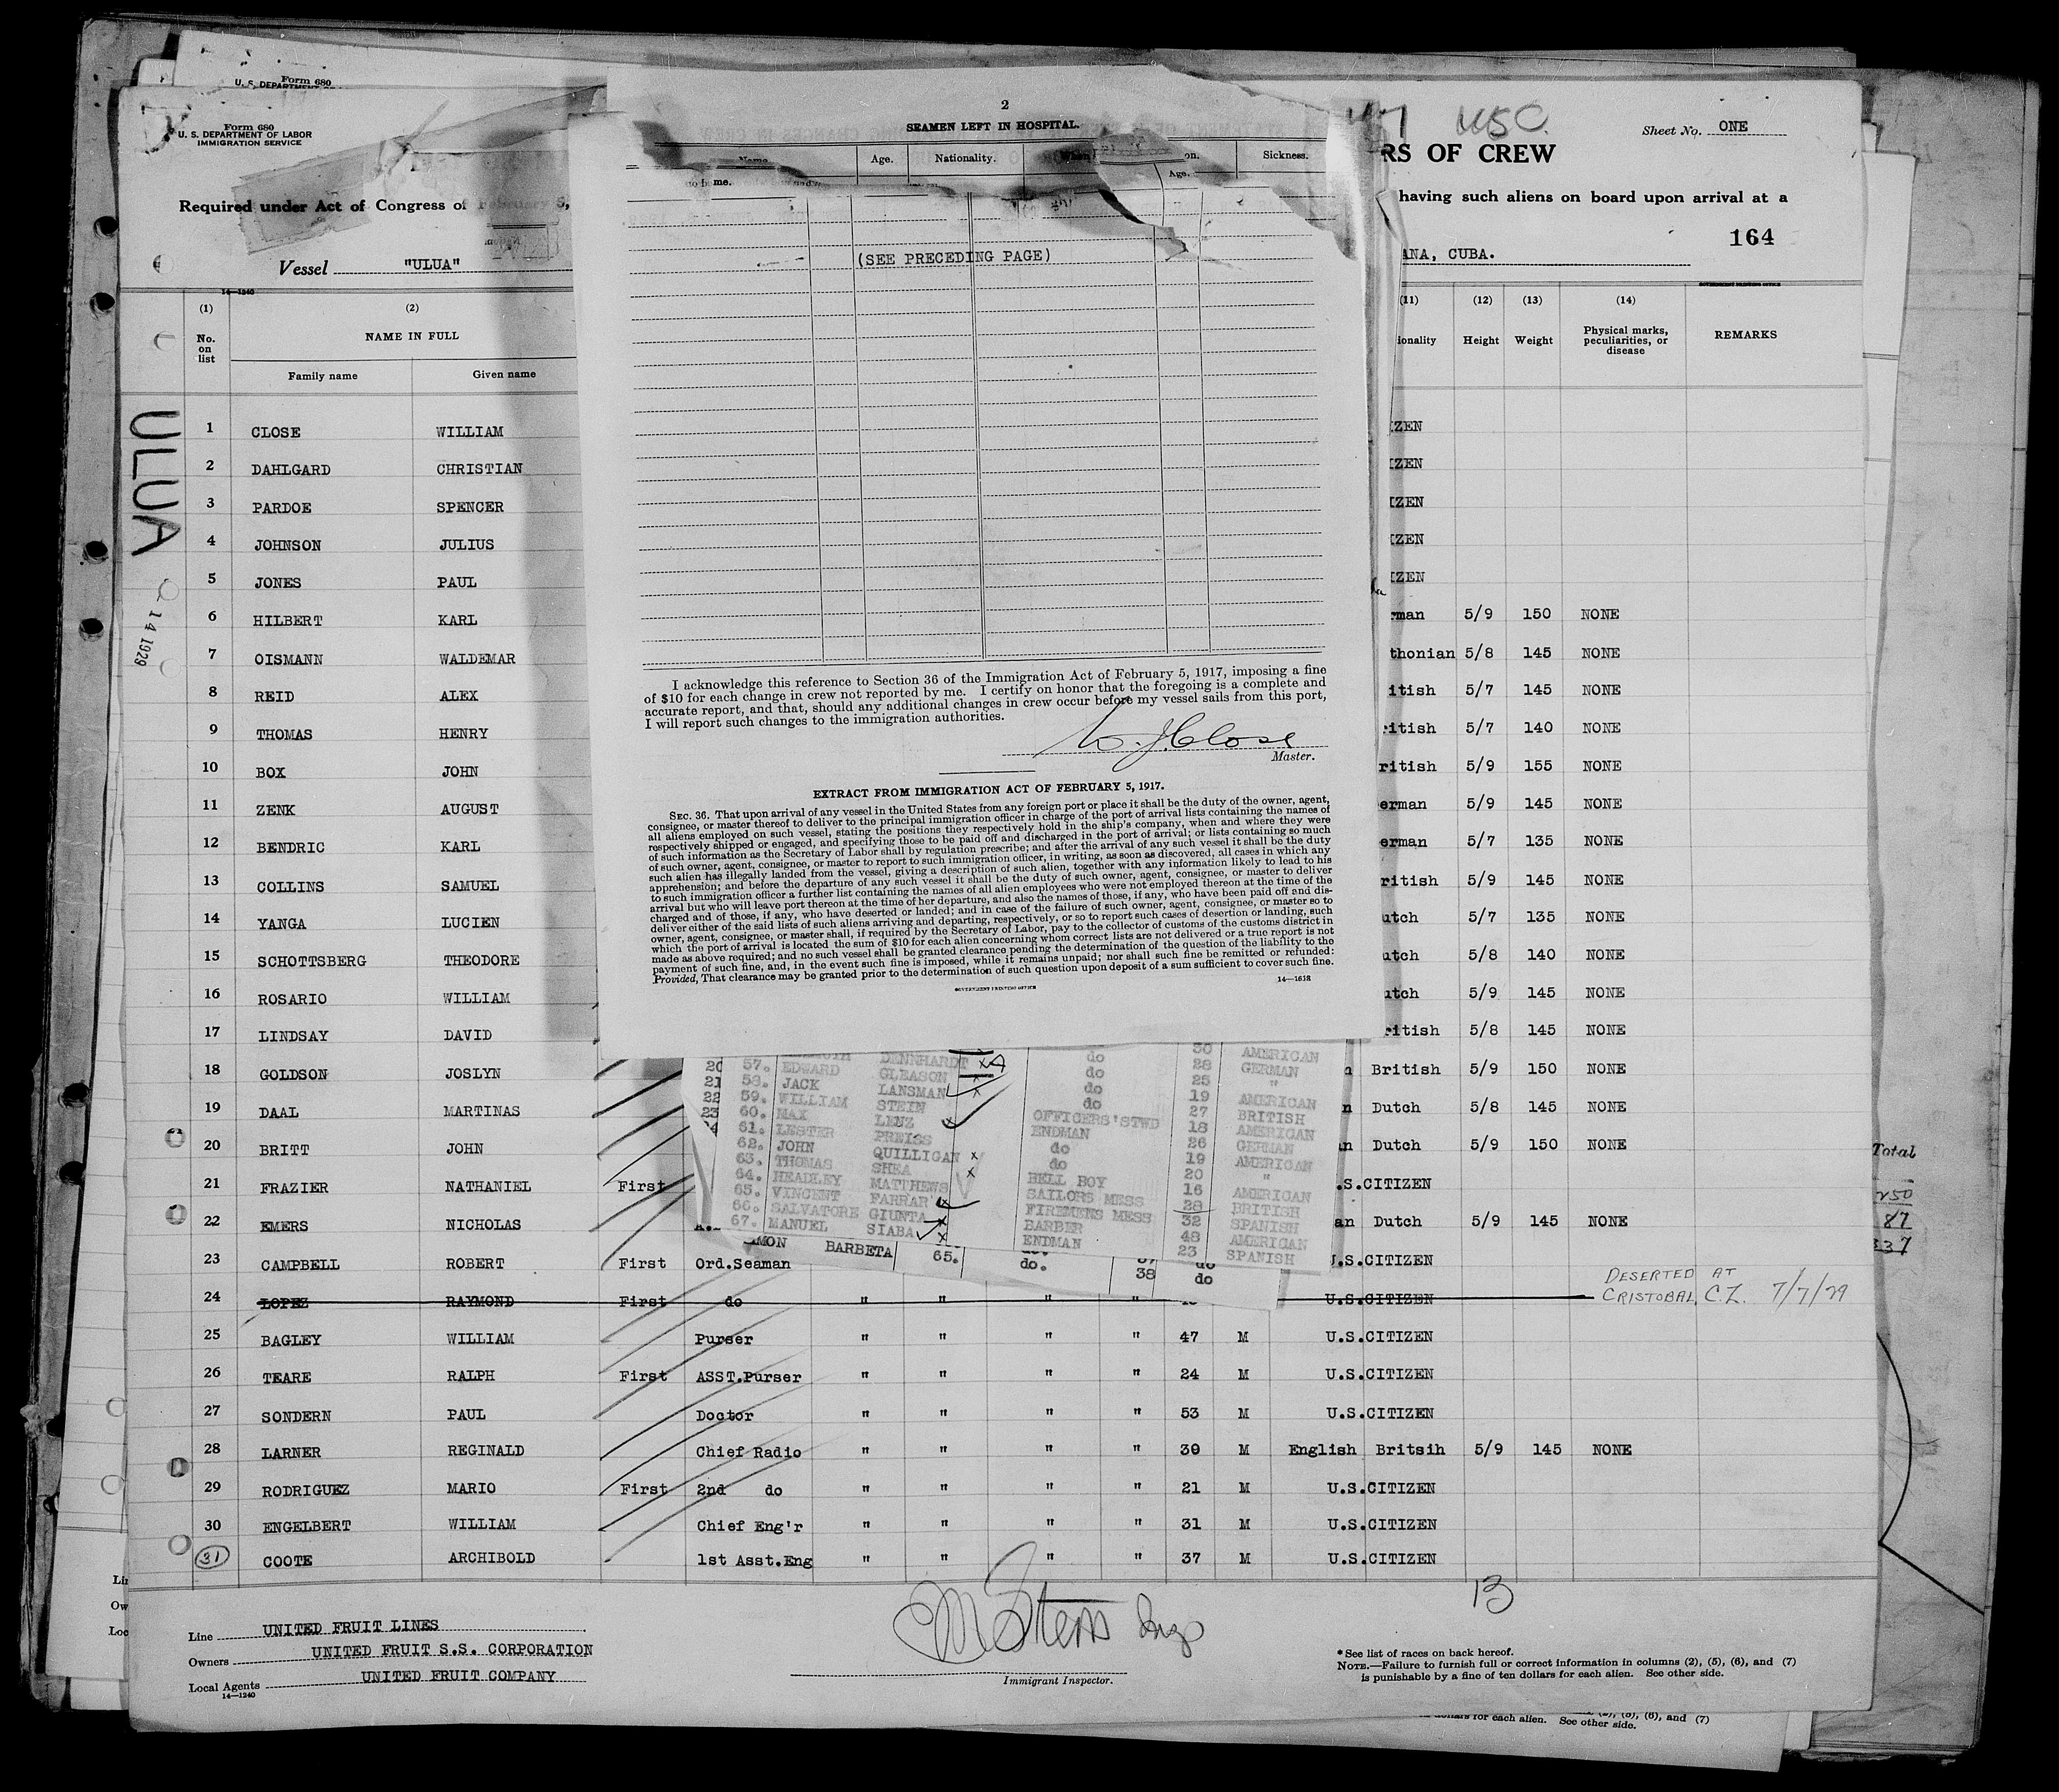 Form 680
U. S. DEPARTMENT
Form 680
U. S. DEPARTMENT OF LABOR
IMMIGRATION SERVICE
Required under Act of Congress of February 5,
Vessel "ULUA"
14—1240
(1) (2)
No. on list
NAME IN FULL
Family name Given name
ULUA
14 1929
1 CLOSE WILLIAM
2 DAHLGARD CHRISTIAN
3 PARDOE SPENCER
4 JOHNSON JULIUS
5 JONES PAUL
6 HILBERT KARL
7 OISMANN WALDEMAR
8 REID ALEX
9 THOMAS HENRY
10 BOX JOHN
11 ZENK AUGUST
12 BENDRIC KARL
13 COLLINS SAMUEL
14 YANGA LUCIEN
15 SCHOTTSBERG THEODORE
16 ROSARIO WILLIAM
17 LINDSAY DAVID
18 GOLDSON JOSLYN
19 DAAL MARTINAS
20 BRITT JOHN
21 FRAZIER NATHANIEL First
22 EMERS NICHOLAS
23 CAMPBELL ROBERT First Ord.Seaman
24 LOPEZ RAYMOND First do " " " " U.S.CITIZEN
DESERTED AT
CRISTOBAL, C.Z. 7/7/29
25 BAGLEY WILLIAM Purser " " " " 47 M U.S.CITIZEN
26 TEARE RALPH First ASST.Purser " " " " 24 M U.S.CITIZEN
27 SONDERN PAUL Doctor " " " " 53 M U.S.CITIZEN
28 LARNER REGINALD Chief Radio " " " " 30 M English Britsih 5/9 145 NONE
29 RODRIGUEZ MARIO First 2nd do " " " " 21 M U.S.CITIZEN
30 ENGELBERT WILLIAM Chief Eng'r " " " " 31 M U.S.CITIZEN
31 COOTE ARCHIBOLD 1st Asst.Eng " " " " 37 M U.S.CITIZEN
13
Line UNITED FRUIT LINES
Owners UNITED FRUIT S.S. CORPORATION
Local Agents UNITED FRUIT COMPANY
14—1240
Immigrant Inspector.
*See list of races on back hereof.
NOTE.—Failure to furnish full or correct information in columns (2), (5), (6), and (7)
is punishable by a fine of ten dollars for each alien. See other side.
for each alien. See other side.
2
SEAMEN LEFT IN HOSPITAL.
Name. Age. Nationality. When on. Sickness.
Age.
(SEE PRECEDING PAGE)
I acknowledge this reference to Section 36 of the Immigration Act of February 5, 1917, imposing a fine
of $10 for each change in crew not reported by me. I certify on honor that the foregoing is a complete and
accurate report, and that, should any additional changes in crew occur before my vessel sails from this port,
I will report such changes to the immigration authorities.
W. J. Close
Master.
EXTRACT FROM IMMIGRATION ACT OF FEBRUARY 5, 1917.
SEC. 36. That upon arrival of any vessel in the United States from any foreign port or place it shall be the duty of the owner, agent,
consignee, or master thereof to deliver to the principal immigration officer in charge of the port of arrival lists containing the names of
all aliens employed on such vessel, stating the positions they respectively hold in the ship's company, when and where they were
respectively shipped or engaged, and specifying those to be paid off and discharged in the port of arrival; or lists containing so much
of such information as the Secretary of Labor shall by regulation prescribe; and after the arrival of any such vessel it shall be the duty
of such owner, agent, consignee, or master to report to such immigration officer, in writing, as soon as discovered, all cases in which any
such alien has illegally landed from the vessel, giving a description of such alien, together with any information likely to lead to his
apprehension; and before the departure of any such vessel it shall be the duty of such owner, agent, consignee, or master to deliver
to such immigration officer a further list containing the names of all alien employees who were not employed thereon at the time of the
arrival but who will leave port thereon at the time of her departure, and also the names of those, if any, who have been paid off and dis-
charged and of those, if any, who have deserted or landed; and in case of the failure of such owner, agent, consignee, or master so to
deliver either of the said lists of such aliens arriving and departing, respectively, or so to report such cases of desertion or landing, such
owner, agent, consignee, or master shall, if required by the Secretary of Labor, pay to the collector of customs of the customs district in
which the port of arrival is located the sum of $10 for each alien concerning whom correct lists are not delivered or a true report is not
made as above required; and no such vessel shall be granted clearance pending the determination of the question of the liability to the
payment of such fine, and, in the event such fine is imposed, while it remains unpaid; nor shall such fine be remitted or refunded:
Provided, That clearance may be granted prior to the determination of such question upon deposit of a sum sufficient to cover such fine.
14—1618
GOVERNMENT PRINTING OFFICE
DENNHARDT do 30 AMERICAN
57. EDWARD GLEASON do 28 GERMAN
58. JACK LANSMAN do 25 "
59. WILLIAM STEIN do 19 AMERICAN
60. MAX LEUZ OFFICERS'STWD 27 BRITISH
61. LESTER PREISS ENDMAN 18 AMERICAN
62. JOHN QUILLIGAN do 26 GERMAN
63. THOMAS SHEA do 19 AMERICAN
64. HEADLEY MATTHEWS BELL BOY 20 "
65. VINCENT FARRAR SAILORS MESS 16 AMERICAN
66. SALVATORE GIUNTA FIREMENS MESS 28 BRITISH
67. MANUEL SIABA BARBER 32 SPANISH
48 AMERICAN
ENDMAN 23 SPANISH
20
21
22
23
BARBETA 65. do. 38 do
Sheet No. ONE
RS OF CREW
having such aliens on board upon arrival at a
164
ANA, CUBA.
GOVERNMENT PRINTING OFFICE
(11) (12) (13) (14)
ionality Height Weight Physical marks, peculiarities, or disease REMARKS
IZEN
IZEN
IZEN
IZEN
IZEN
rman 5/9 150 NONE
thonian 5/8 145 NONE
itish 5/7 145 NONE
ritish 5/7 140 NONE
ritish 5/9 155 NONE
erman 5/9 145 NONE
erman 5/7 135 NONE
ritish 5/9 145 NONE
utch 5/7 135 NONE
utch 5/8 140 NONE
utch 5/9 145 NONE
ritish 5/8 145 NONE
British 5/9 150 NONE
n Dutch 5/8 145 NONE
n Dutch 5/9 150 NONE
.S.CITIZEN
an Dutch 5/9 145 NONE
.S.CITIZEN
Total
250
87
337